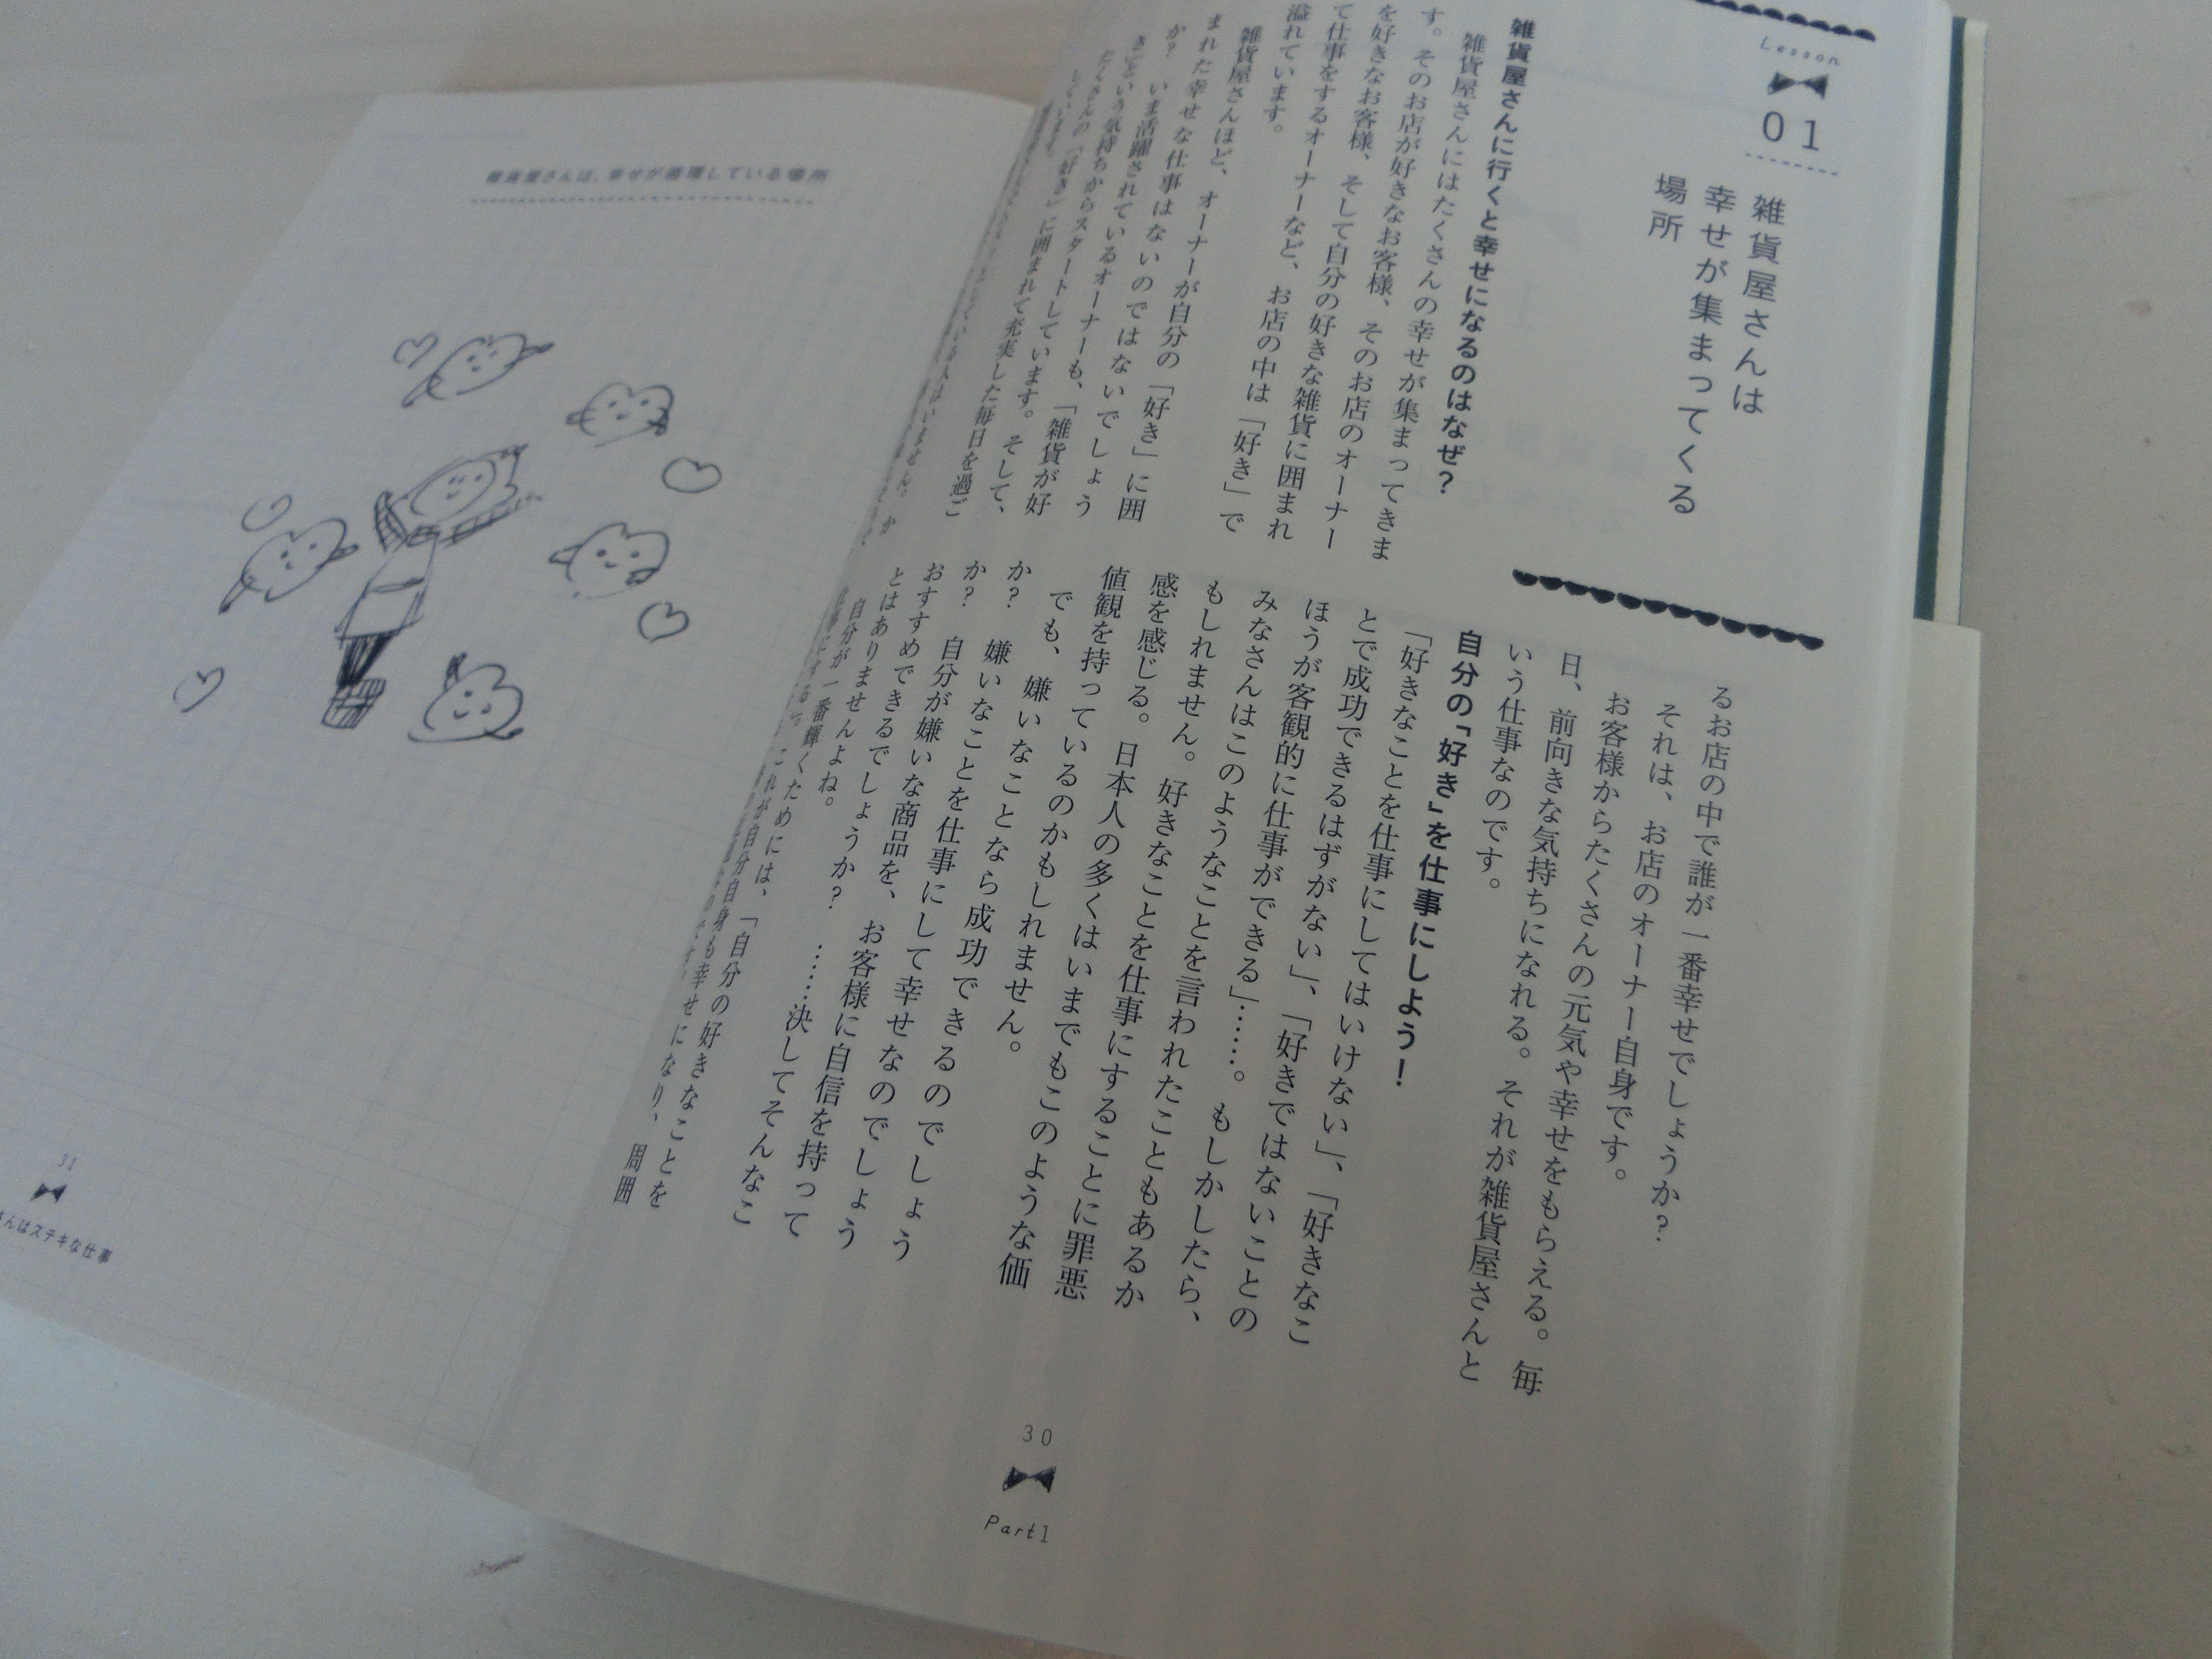 Lesson
01
雑貨屋さんは
幸せが集まってくる
場所
雑貨屋さんに行くと幸せになるのはなぜ？
雑貨屋さんにはたくさんの幸せが集まってきま
す。そのお店が好きなお客様、そのお店のオーナー
を好きなお客様、そして自分の好きな雑貨に囲まれ
て仕事をするオーナーなど、お店の中は「好き」で
溢れています。
雑貨屋さんほど、オーナーが自分の「好き」に囲
まれた幸せな仕事はないのではないでしょう
か？　いま活躍されているオーナーも、「雑貨が好
き」という気持ちからスタートしています。そして、
たくさんの「好き」に囲まれて充実した毎日を過ご
しています。
るお店の中で誰が一番幸せでしょうか？
それは、お店のオーナー自身です。
お客様からたくさんの元気や幸せをもらえる。毎
日、前向きな気持ちになれる。それが雑貨屋さんと
いう仕事なのです。
自分の「好き」を仕事にしよう！
「好きなことを仕事にしてはいけない」、「好きなこ
とで成功できるはずがない」、「好きではないことの
ほうが客観的に仕事ができる」……。もしかしたら、
みなさんはこのようなことを言われたこともあるか
もしれません。好きなことを仕事にすることに罪悪
感を感じる。日本人の多くはいまでもこのような価
値観を持っているのかもしれません。
でも、嫌いなことなら成功できるのでしょう
か？　嫌いなことを仕事にして幸せなのでしょう
か？　自分が嫌いな商品を、お客様に自信を持って
おすすめできるでしょうか？　……決してそんなこ
とはありませんよね。
自分が一番輝くためには、「自分の好きなことを
仕事にする」。これが自分自身も幸せになり、周囲
30
Part1
雑貨屋さんは、幸せが循環している場所
31
さんはステキな仕事